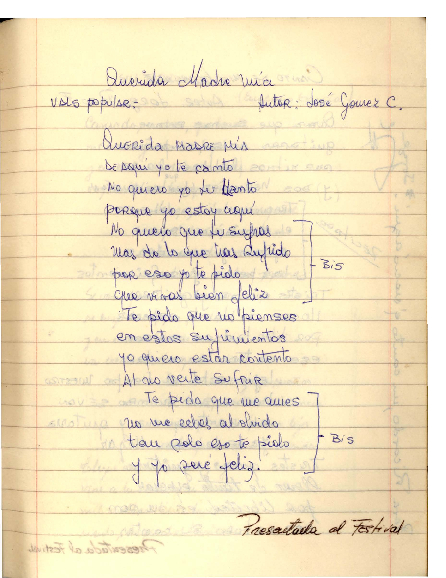 Querida Madre mía
Vals popular.- Autor: José Gomez C.
Querida Madre mía
desde aquí yo te canto
No quiero yo tu llanto
porque yo estoy aquí
No quiero que tu sufras
mas de lo que has sufrido
por eso yo te pido
que vivas bien feliz
Bis
Te pido que no pienses
en estos sufrimientos
yo quiero estar contento
Al no verte sufrir
Te pido que me ames
no me eches al olvido
tan solo eso te pido
y yo sere feliz.
Bis
Presentada al Festival